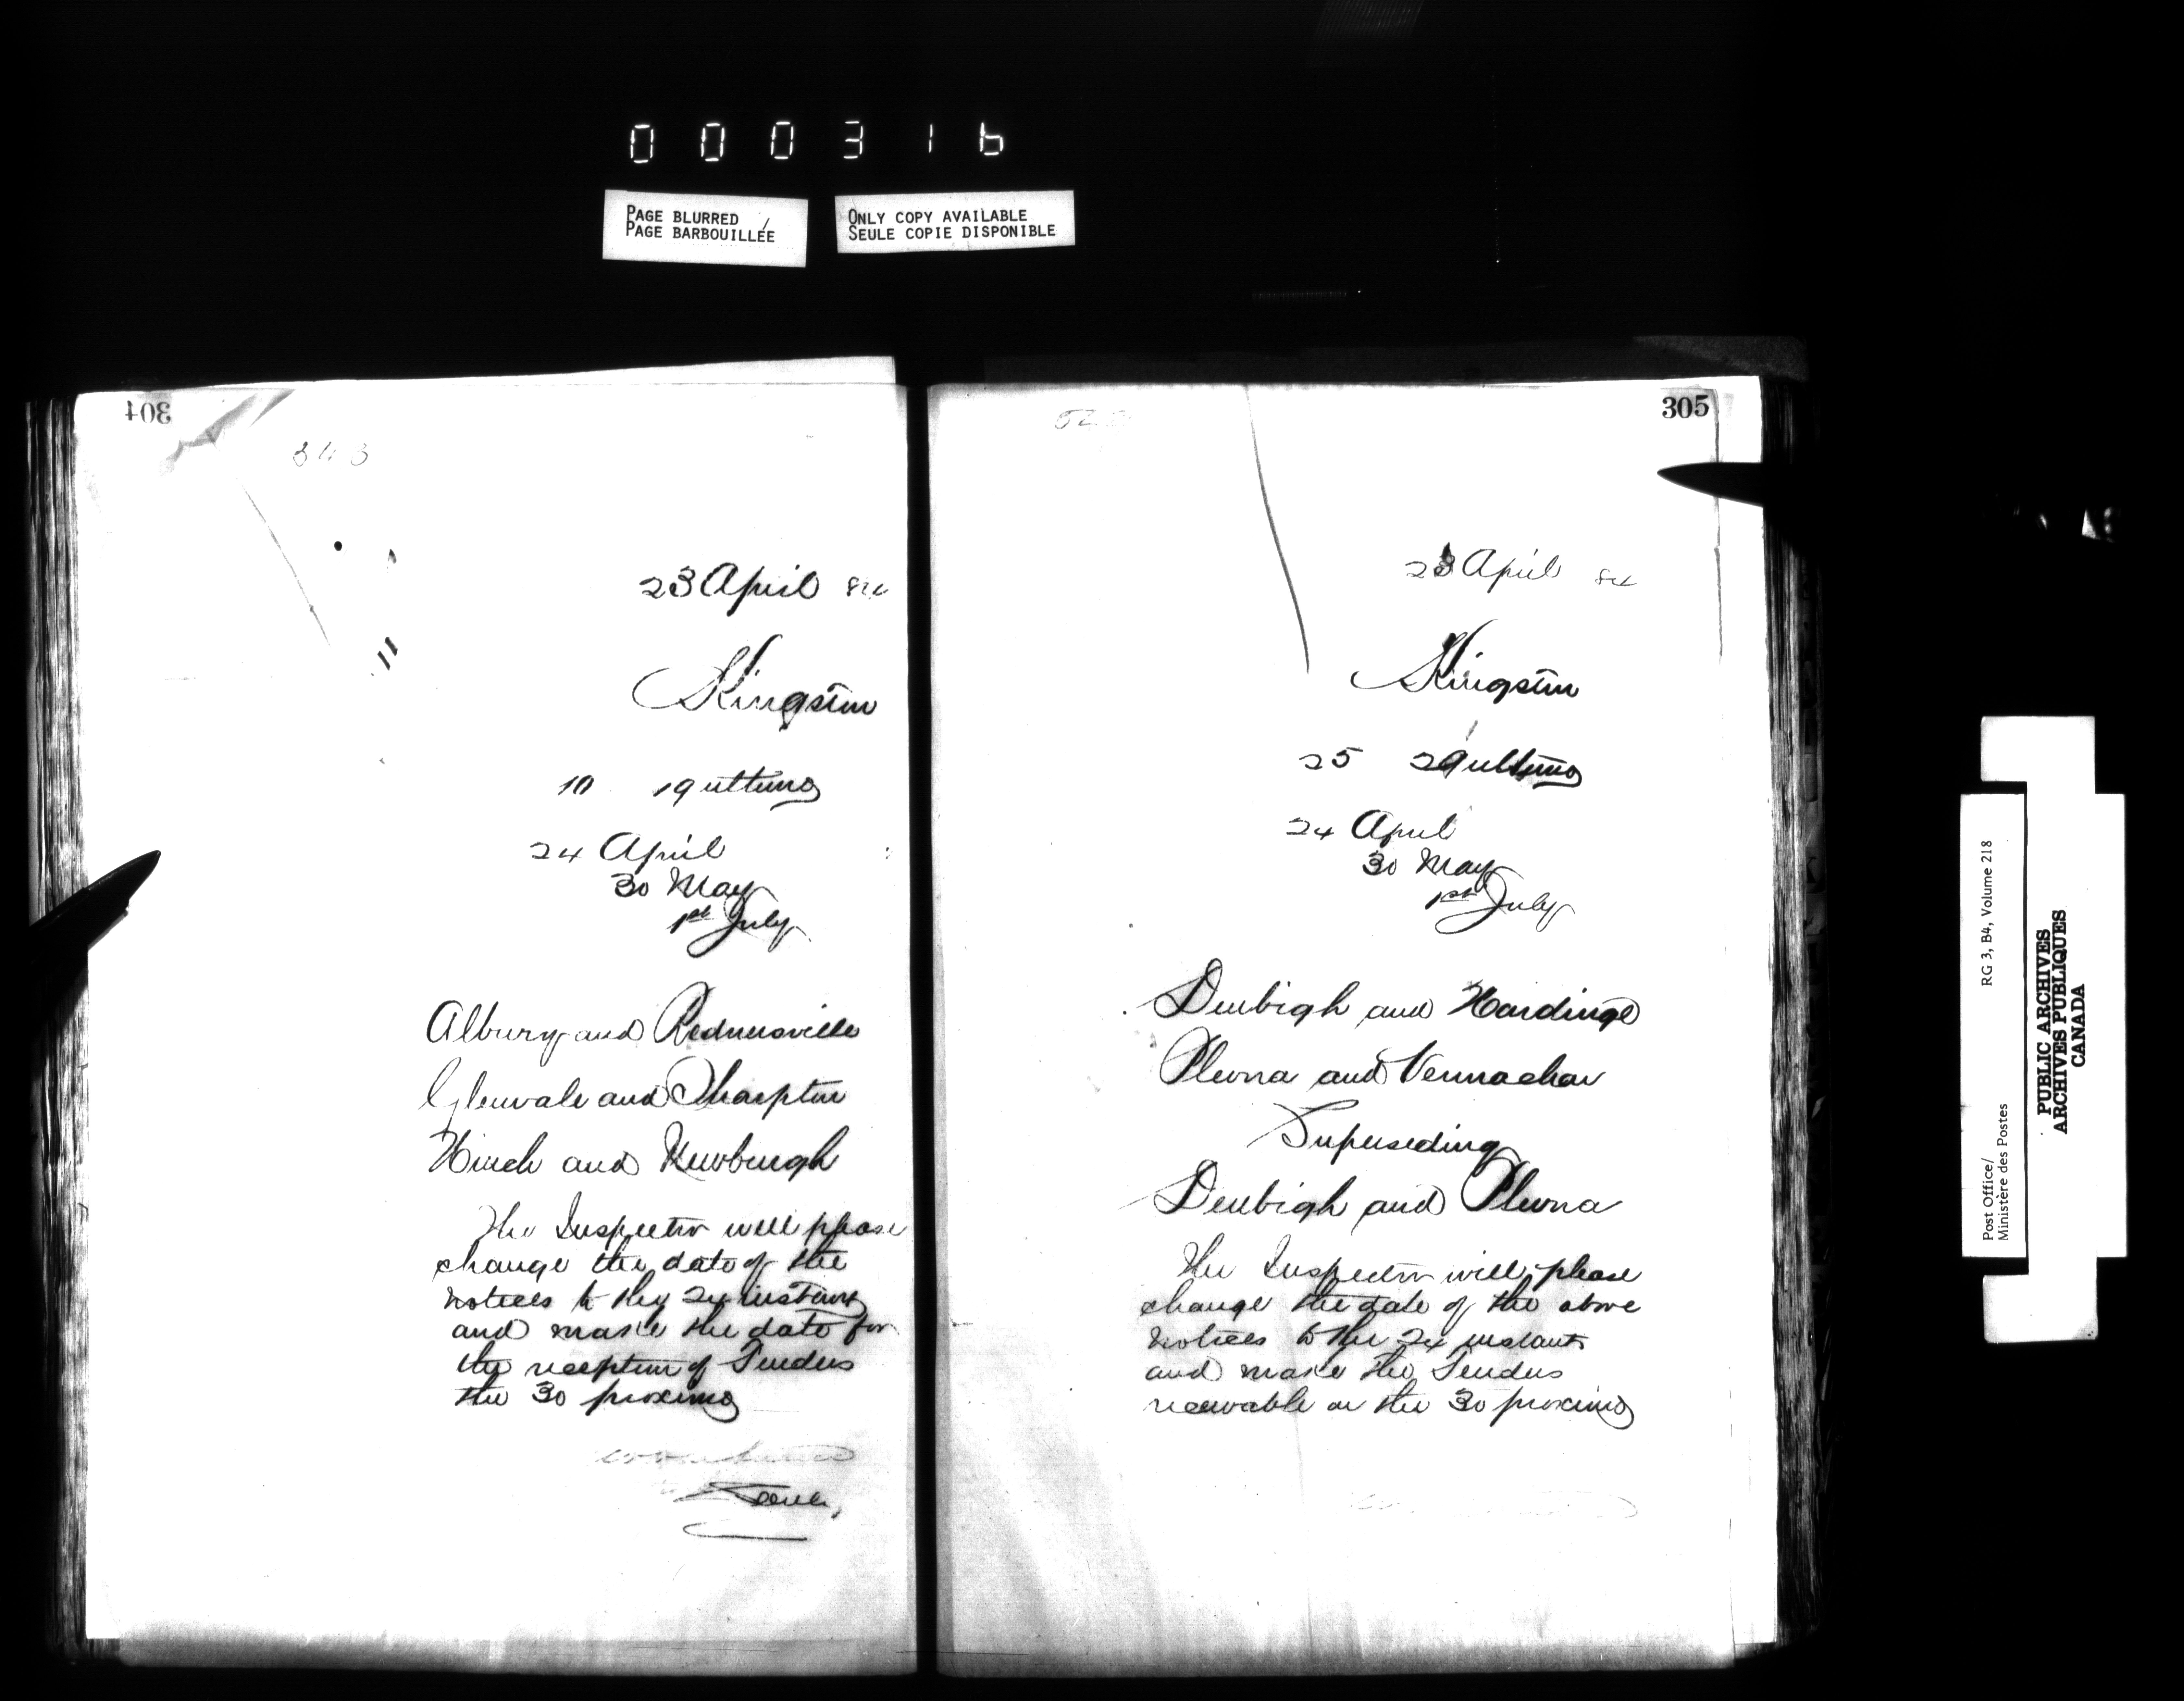 000316
PAGE BLURRED
PAGE BARBOUILLÉE
ONLY COPY AVAILABLE
SEULE COPIE DISPONIBLE
304
343
23 April 84
Kingston
10 19 ultimo
24 April
30 May
1st July
Albury and Rednersville
Glenvale and Sharpton
Hinch and Newburgh
The Inspector will please
change the date of the
notices to the 24 instant
and make the date for
the reception of Tenders
the 30 proximo
305
23 April 84
Kingston
25 29 ultimo
24 April
30 May
1st July
Denbigh and Hardinge
Plevna and Vennachar
Superseding
Denbigh and Plevna
The Inspector will please
change the date of the above
notices to the 24 instant
and make the Tenders
receivable on the 30 proximo
Post Office/
Ministère des Postes
RG 3, B4, Volume 218
PUBLIC ARCHIVES
ARCHIVES PUBLIQUES
CANADA